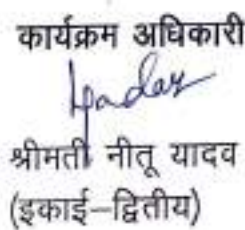 कार्यक्रम अधिकारी
Yadav
श्रीमती नीतू यादव
(इकाई–द्वितीय)